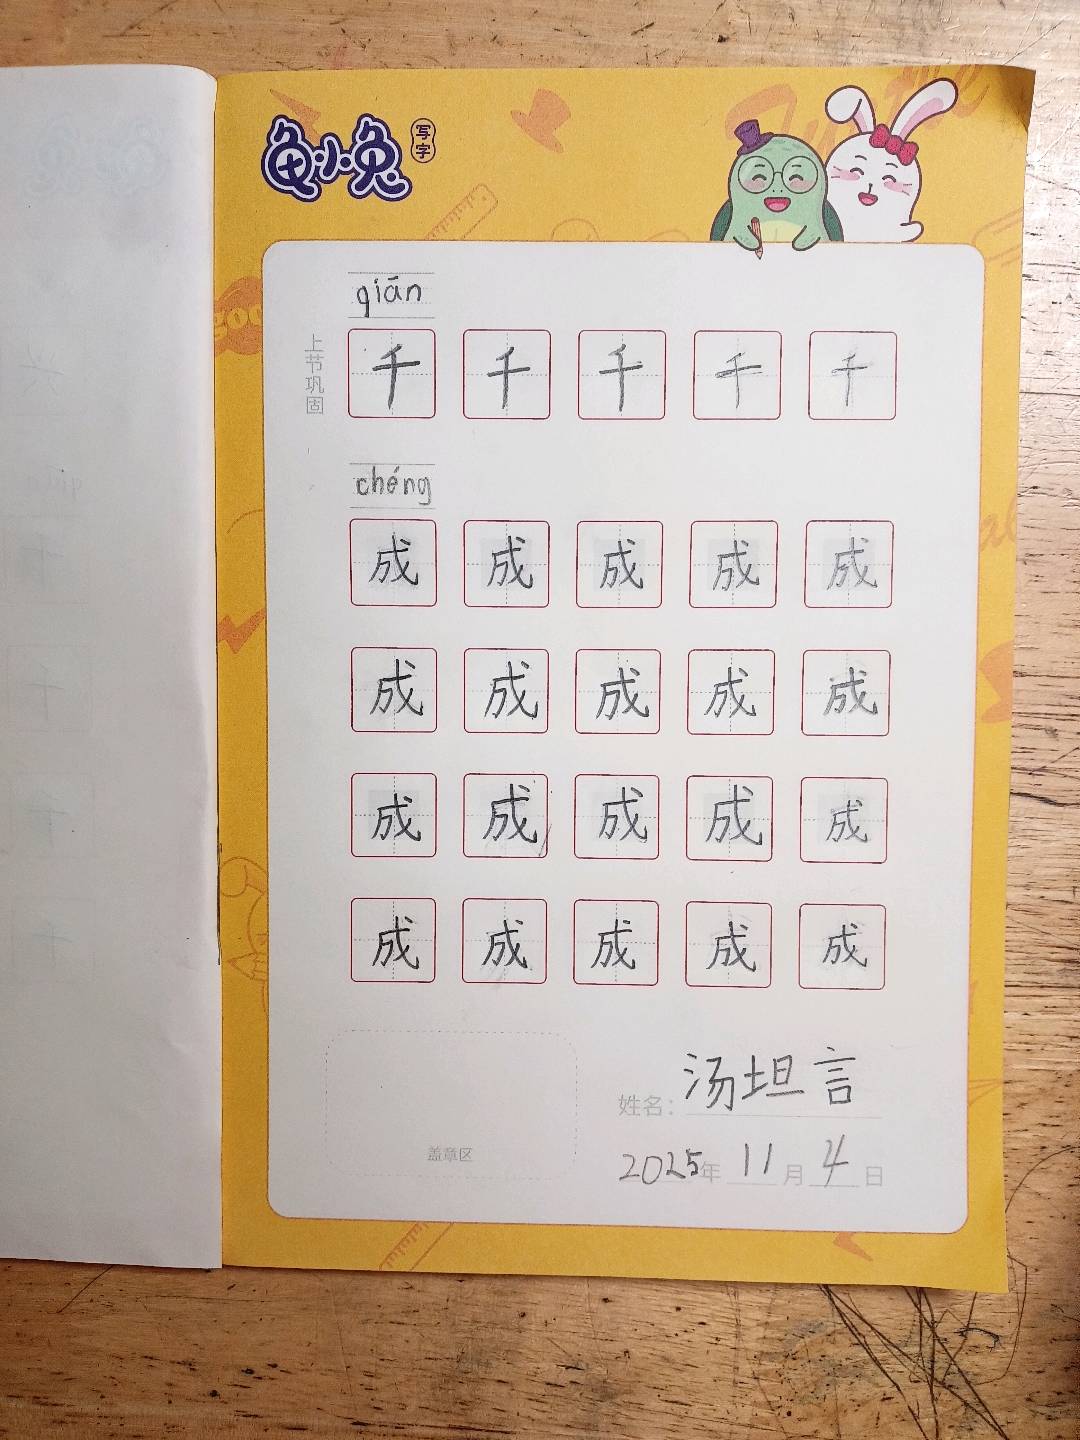 龟小兔写字
qiān
上节巩固
千 千 千 千 千
chéng
成 成 成 成 成
成 成 成 成 成
成 成 成 成 成
成 成 成 成 成
姓名：汤坦言
盖章区
2025年 11月 4日